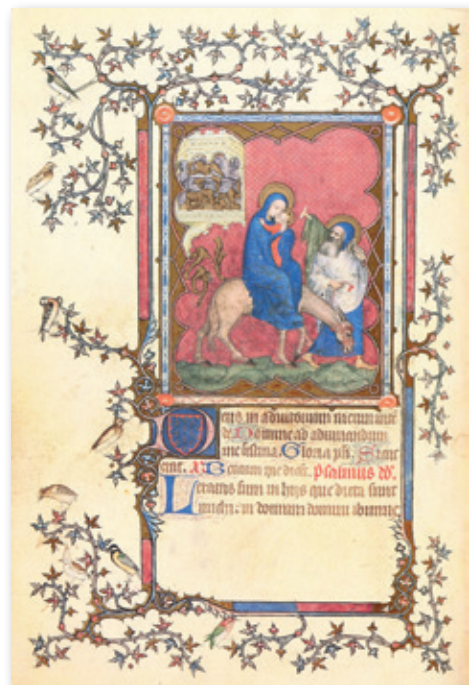 Deus in adiutorium meum inten
de. Domine ad adiuuandum
me festina. Gloria pri. Sicut
erat. Beatam me dicet. Psalmus dd.
Letatus sum in hijs que dicta sunt
michi. in domum domini ibimus